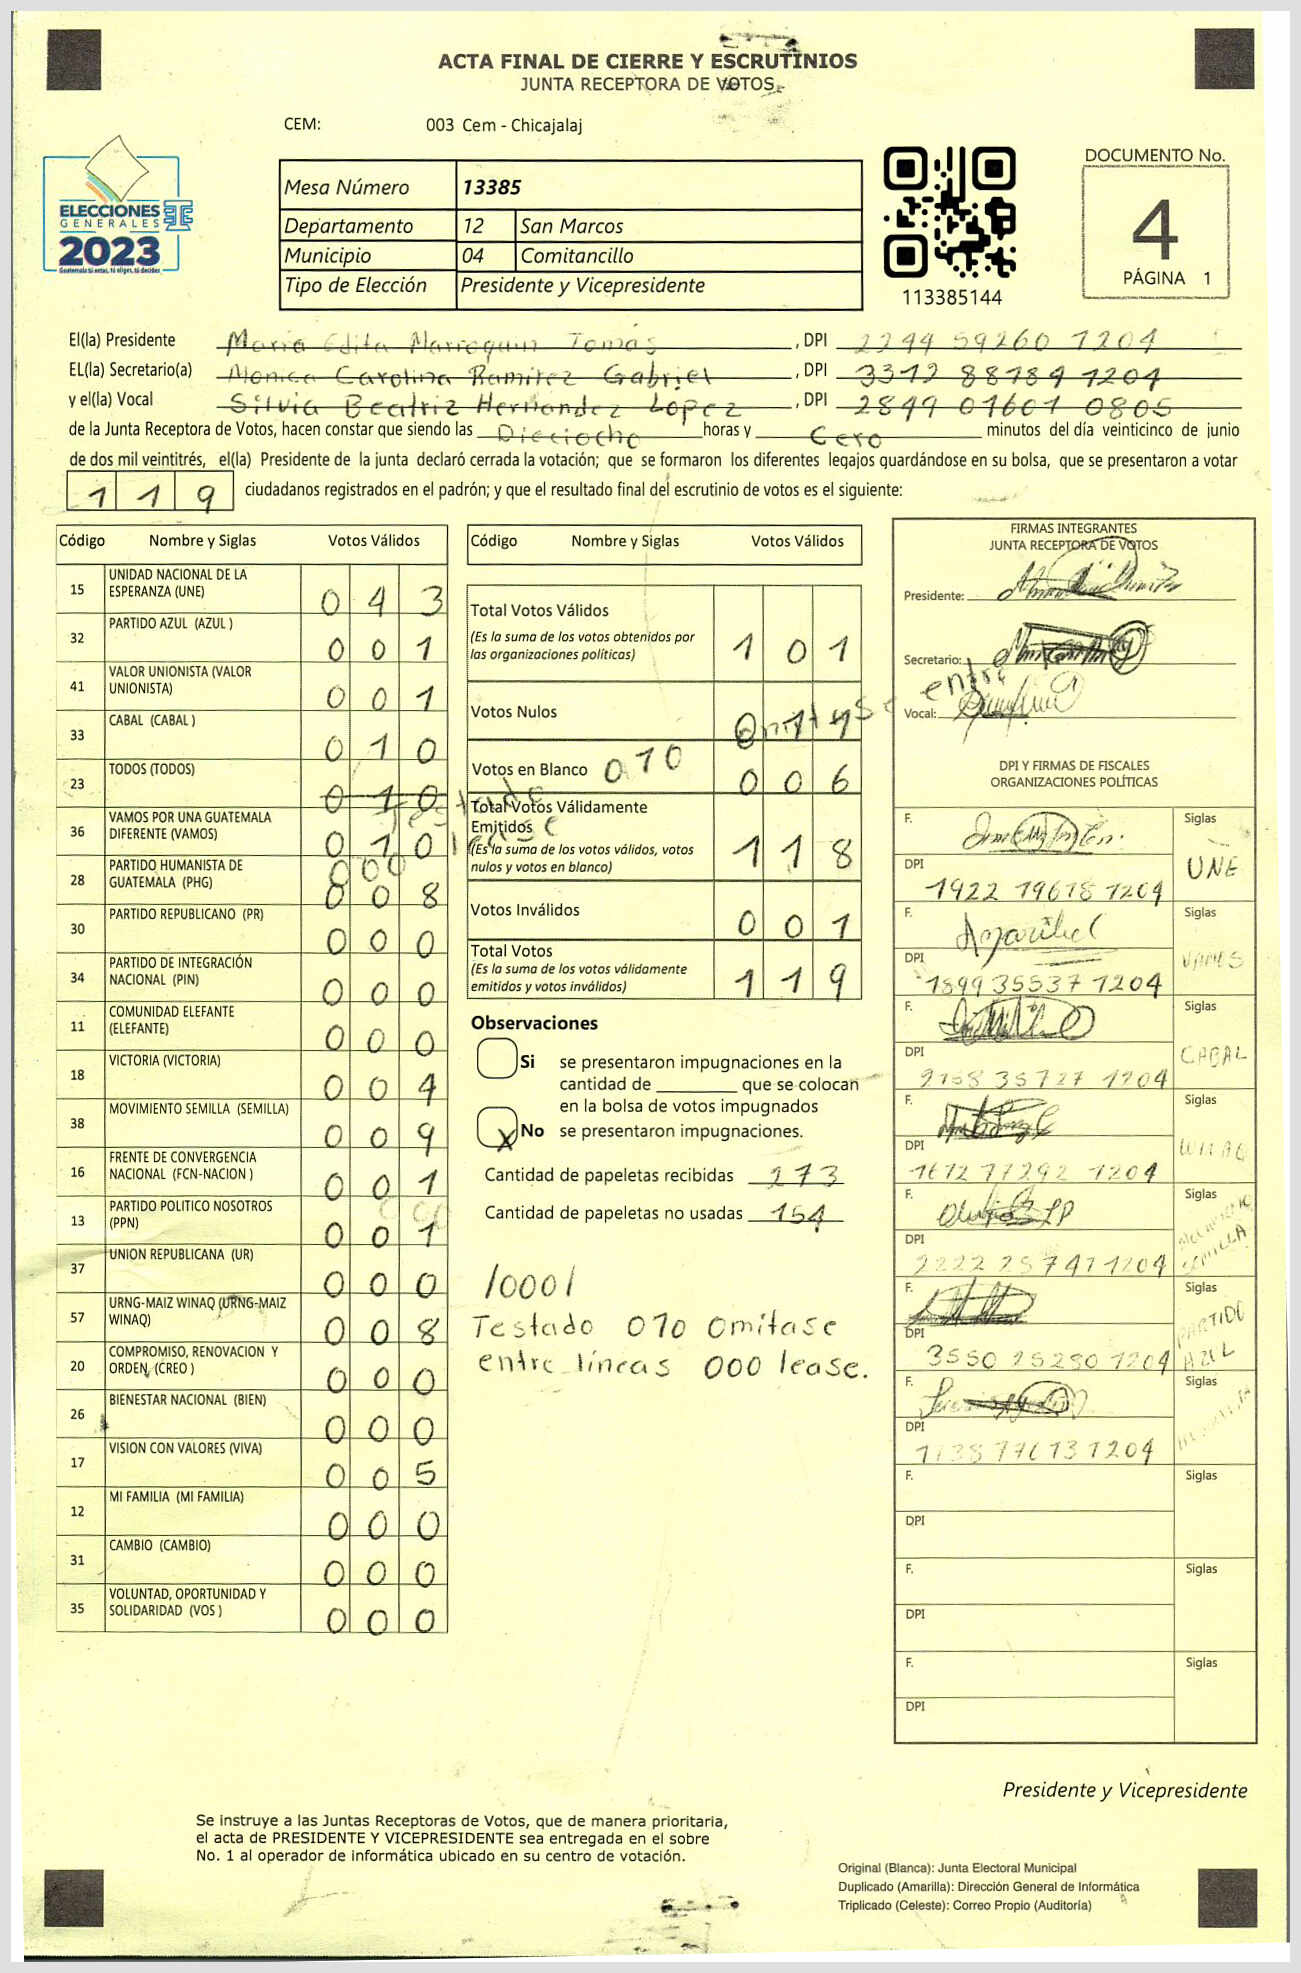 ACTA FINAL DE CIERRE Y ESCRUTINIOS
JUNTA RECEPTORA DE VOTOS
CEM: 003 Cem - Chicajalaj
ELECCIONES
GENERALES
2023
Guatemala tú entas, tú eliges, tú decides
Mesa Número 13385
Departamento 12 San Marcos
Municipio 04 Comitancillo
Tipo de Elección Presidente y Vicepresidente
113385144
DOCUMENTO No.
4
PÁGINA 1
El(la) Presidente María Edita Marroquin Tomás, DPI 2244 59260 1204
EL(la) Secretario(a) Monica Carolina Ramirez Gabriel, DPI 3312 88784 1204
y el(la) Vocal Silvia Beatriz Hernandez Lopez, DPI 2849 01601 0805
de la Junta Receptora de Votos, hacen constar que siendo las Dieciocho horas y Cero minutos del día veinticinco de junio
de dos mil veintitrés, el(la) Presidente de la junta declaró cerrada la votación; que se formaron los diferentes legajos guardándose en su bolsa, que se presentaron a votar
119 ciudadanos registrados en el padrón; y que el resultado final del escrutinio de votos es el siguiente:
Código Nombre y Siglas Votos Válidos
15 UNIDAD NACIONAL DE LA ESPERANZA (UNE) 043
32 PARTIDO AZUL (AZUL ) 001
41 VALOR UNIONISTA (VALOR UNIONISTA) 001
33 CABAL (CABAL ) 010
23 TODOS (TODOS) 010
36 VAMOS POR UNA GUATEMALA DIFERENTE (VAMOS) 010
000
28 PARTIDO HUMANISTA DE GUATEMALA (PHG) 008
30 PARTIDO REPUBLICANO (PR) 000
34 PARTIDO DE INTEGRACIÓN NACIONAL (PIN) 000
11 COMUNIDAD ELEFANTE (ELEFANTE) 000
18 VICTORIA (VICTORIA) 004
38 MOVIMIENTO SEMILLA (SEMILLA) 009
16 FRENTE DE CONVERGENCIA NACIONAL (FCN-NACION ) 001
13 PARTIDO POLITICO NOSOTROS (PPN) 001
37 UNION REPUBLICANA (UR) 000
57 URNG-MAIZ WINAQ (URNG-MAIZ WINAQ) 008
20 COMPROMISO, RENOVACION Y ORDEN, (CREO ) 000
26 BIENESTAR NACIONAL (BIEN) 000
17 VISION CON VALORES (VIVA) 005
12 MI FAMILIA (MI FAMILIA) 000
31 CAMBIO (CAMBIO) 000
35 VOLUNTAD, OPORTUNIDAD Y SOLIDARIDAD (VOS ) 000
Código Nombre y Siglas Votos Válidos
Total Votos Válidos
(Es la suma de los votos obtenidos por
las organizaciones políticas) 101
Votos Nulos 011
Votos en Blanco 006
Testado 010 omitase entre
lease
Total Votos Válidamente
Emitidos
(Es la suma de los votos válidos, votos
nulos y votos en blanco) 118
Votos Inválidos 001
Total Votos
(Es la suma de los votos válidamente
emitidos y votos inválidos) 119
Observaciones
Si se presentaron impugnaciones en la
cantidad de ________ que se colocan
en la bolsa de votos impugnados
X No se presentaron impugnaciones.
Cantidad de papeletas recibidas 273
Cantidad de papeletas no usadas 154
/000/
Testado 010 Omitase
entre líneas 000 lease.
FIRMAS INTEGRANTES
JUNTA RECEPTORA DE VOTOS
Presidente:
Secretario:
Vocal:
DPI Y FIRMAS DE FISCALES
ORGANIZACIONES POLÍTICAS
F. Siglas
DPI 1922 19618 1204 UNE
F. Siglas
DPI 1899 35537 1204 VAMOS
F. Siglas
DPI 2158 35727 1204 CABAL
F. Siglas
DPI 1612 77292 1204 WINAQ
F. Siglas
DPI 2222 25747 1204 MOVIMIENTO SEMILLA
F. Siglas
DPI 3550 25280 1204 PARTIDO AZUL
F. Siglas
DPI
F. Siglas
DPI
F. Siglas
DPI
F. Siglas
DPI
Presidente y Vicepresidente
Se instruye a las Juntas Receptoras de Votos, que de manera prioritaria,
el acta de PRESIDENTE Y VICEPRESIDENTE sea entregada en el sobre
No. 1 al operador de informática ubicado en su centro de votación.
Original (Blanca): Junta Electoral Municipal
Duplicado (Amarilla): Dirección General de Informática
Triplicado (Celeste): Correo Propio (Auditoría)